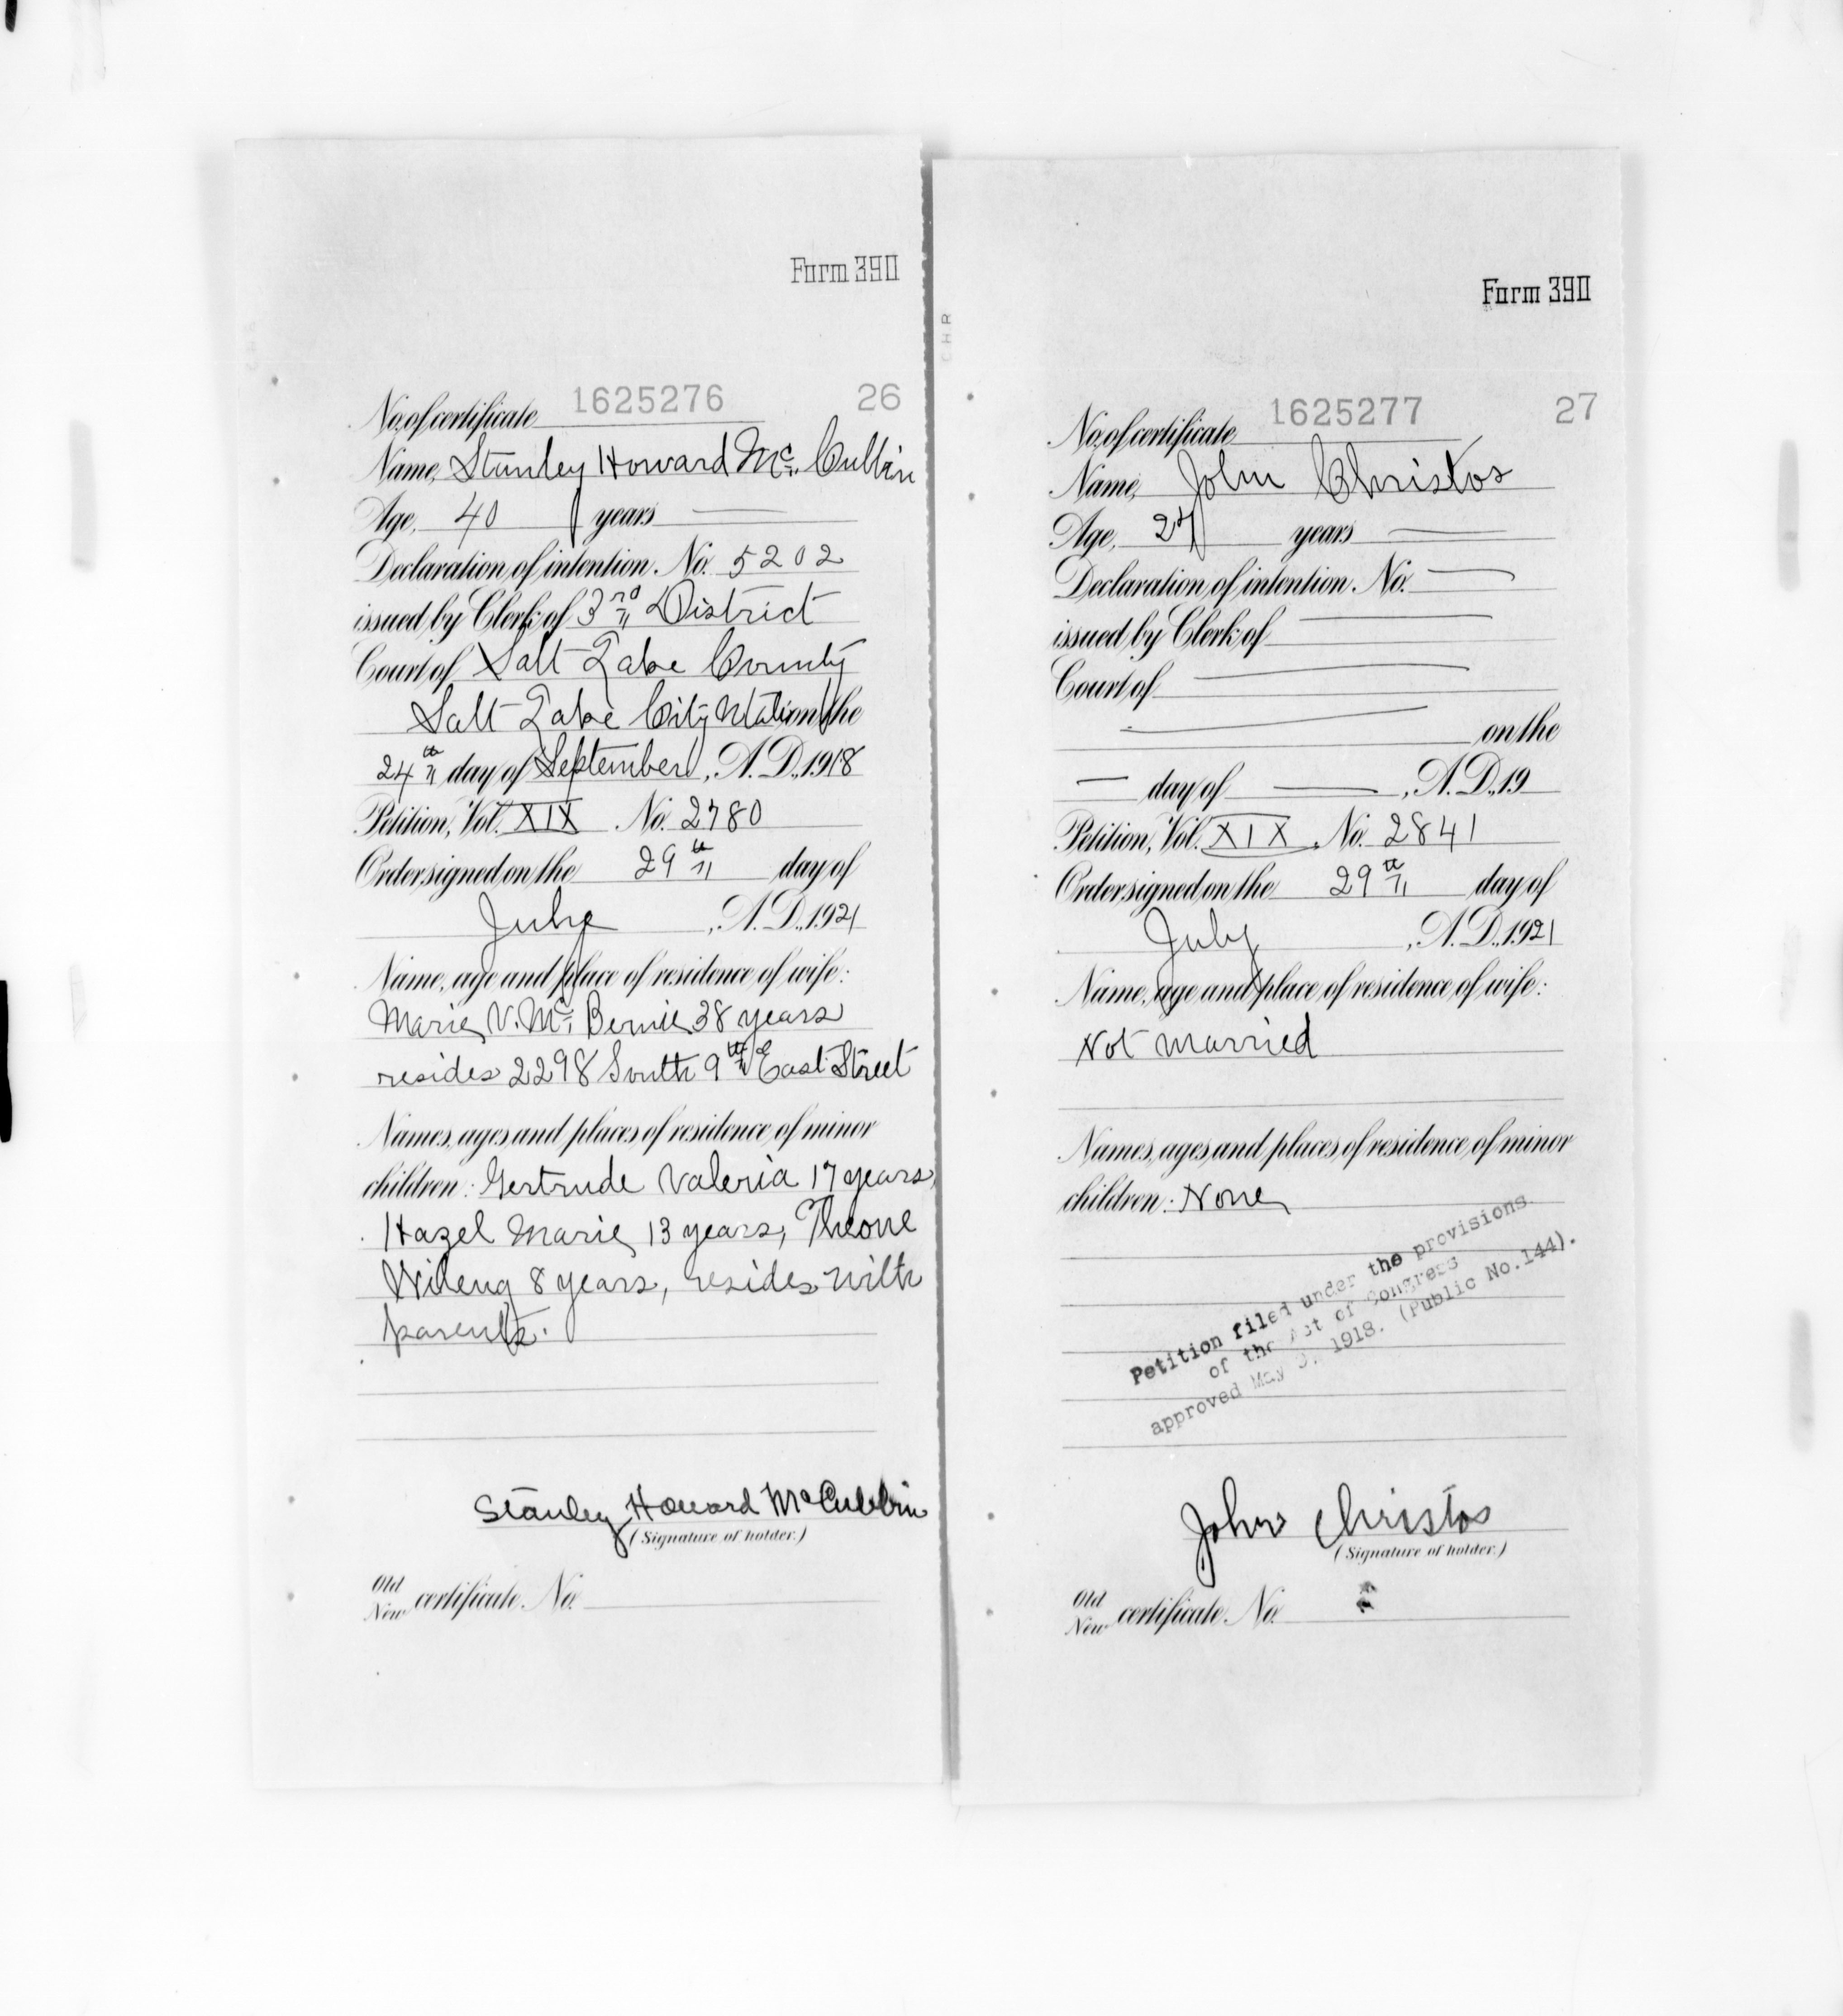 Form 390
No. of certificate 1625276 26
Name, Stanley Howard Mc. Cubbin
Age, 40 years
Declaration of intention. No. 5202
issued by Clerk of 3rd District
Court of Salt Lake County
Salt Lake City Utah on the
24th day of September, A.D., 1918
Petition, Vol. XIX No. 2780
Order signed on the 29th day of
July, A.D., 1921
Name, age and place of residence of wife:
Marie V. Mc. 38 years
resides 2298 South 9th East Street
Names, ages and places of residence of minor
children: Gertrude Valeria 17 years,
Hazel Marie 13 years, Theone
8 years, resides with
parents.
Stanley Howard McCubbin
(Signature of holder.)
Old
New certificate. No.
CHR
Form 390
No. of certificate 1625277 27
Name, John Christos
Age, 27 years
Declaration of intention. No.
issued by Clerk of
Court of
on the
day of , A.D., 19
Petition, Vol. XIX. No. 2841
Order signed on the 29th day of
July, A.D., 1921
Name, age and place of residence of wife:
Not married
Names, ages and places of residence of minor
children: None
Petition filed under the provisions
of the Act of Congress
approved May 1918. (Public No. 144).
John Christos
(Signature of holder.)
Old
New certificate. No.